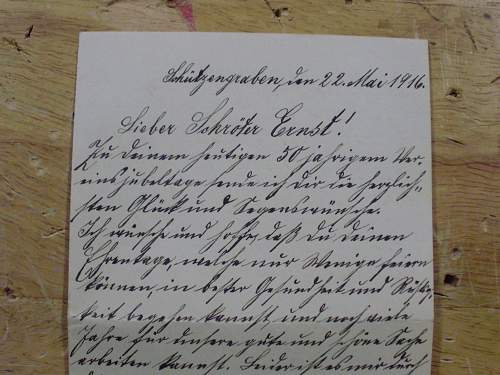 Schützengraben, den 22. Mai 1916.
Lieber Schröter Ernst!
Zu deinem heutigen 50 jährigem Ver-
einsjubeltage sende ich dir die herzlich-
sten Glück und Segenswünsche.
Ich wünsche und hoffe, daß du deinen
Ehrentage, welche nur Wenige feiern
können, in bester Gesundheit und Rüstig-
keit begehen kannst, und noch viele
Jahre für unsere gute und schöne Sache
arbeiten kannst. Leider ist es mir durch